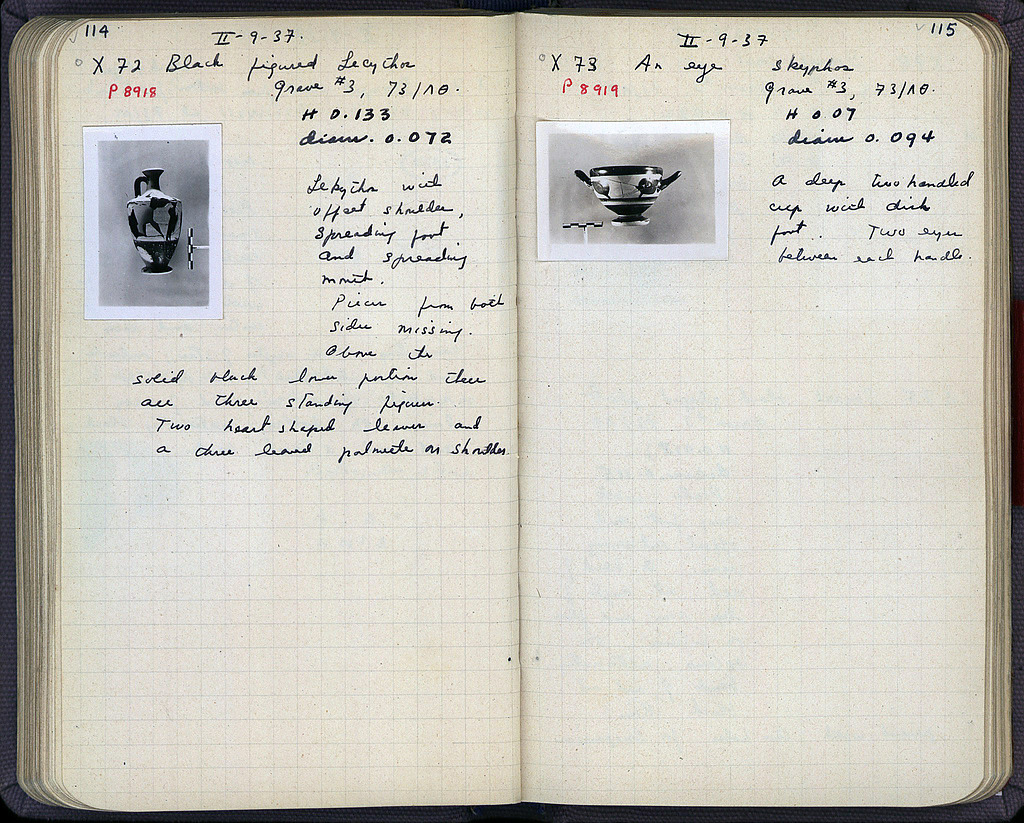 114
II-9-37.
X 72 Black figured Lecythos
P 8918
grave #3, 73/ΛΘ.
H 0.133
diam. 0.072
Lekythos with
offset shoulder,
spreading foot
and spreading
mouth.
Pieces from both
sides missing.
Above the
solid black lower portion there
are three standing figures.
Two heart shaped leaves and
a three leaved palmette on shoulder.
115
II-9-37
X 73 An eye skyphos
P 8919
grave #3, 73/ΛΘ.
H 0.07
diam 0.094
A deep two handled
cup with disk
foot. Two eyes
between each handle.